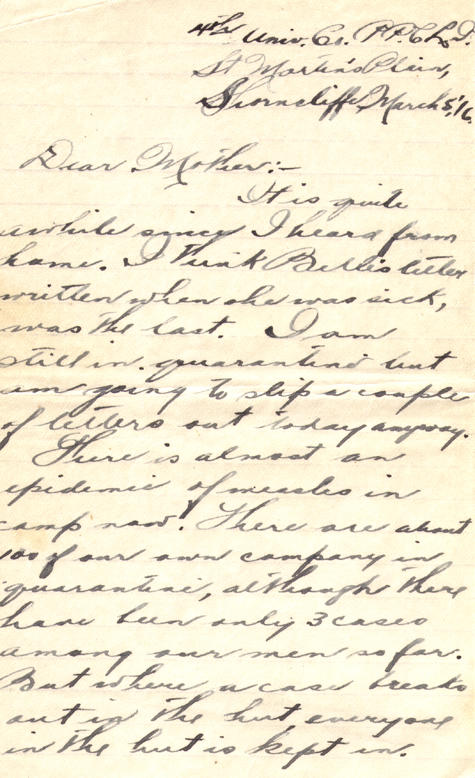 4th Univ. Co. P.P.C.L.I.
St Martin's Plain,
Shorncliffe, March 5, '16.
Dear Mother:-
It is quite
awhile since I heard from
home. I think Belle's letter
written when she was sick,
was the last. I am
still in quarantine but
am going to slip a couple
of letters out today anyway.
There is almost an
epidemic of measles in
camp now. There are about
100 of our own company in
quarantine, although there
have been only 3 cases
among our men so far.
But where a case breaks
out in the hut, everyone
in the hut is kept in.